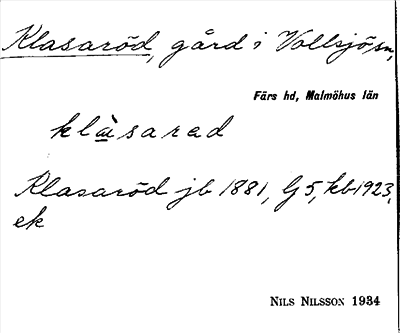 Klasaröd, gård i Vollsjö sn,
Färs hd, Malmöhus län
klàsared
Klasaröd jb 1881, G 5, kb 1923,
ek
NILS NILSSON 1934